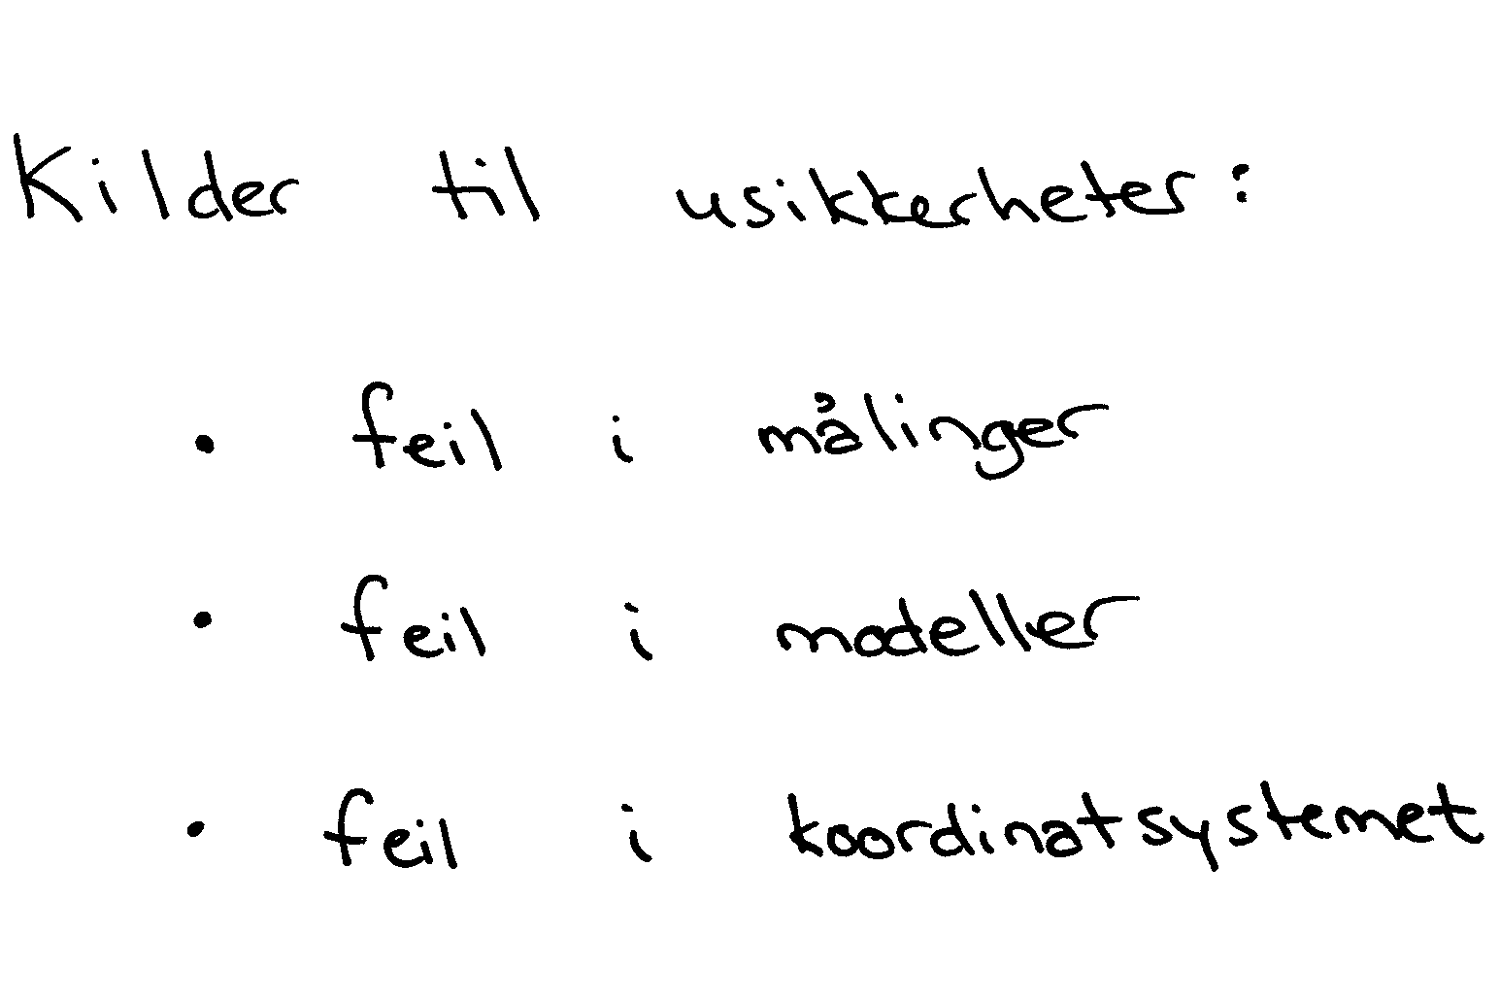 Kilder til usikkerheter:
• feil i målinger
• feil i modeller
• feil i koordinatsystemet